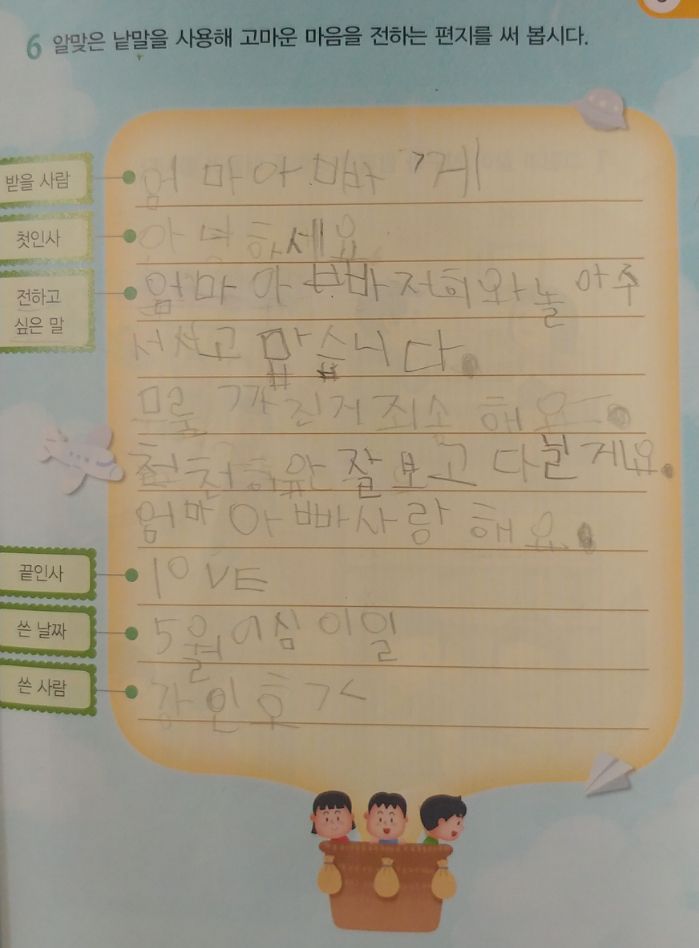 6 알맞은 낱말을 사용해 고마운 마음을 전하는 편지를 써 봅시다.
받을 사람
엄마아빠께
첫인사
안녕하세요
전하고
싶은 말
엄마 아빠 저희와 놀아주
셔서고맙습니다.
무릎 까진거죄소해요.
천천히앞 잘보고 다닐게요.
엄마 아빠사랑해요.
끝인사
lOVE
쓴 날짜
5월이십이일
쓴 사람
강인호가